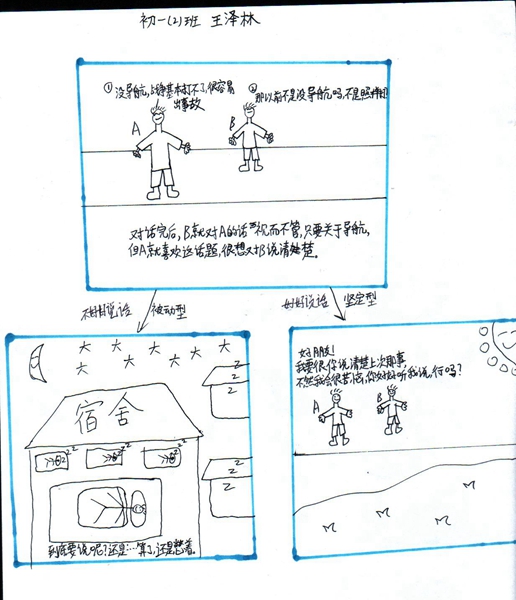 初一(2)班 王泽林
①没导航,战争基本打不了,很容易
出事故
②那以前不是没导航吗,不是照样打
A
B
对话完后,B就对A的话视而不管,只要关于导航,
但A就喜欢这话题,很想对B说清楚。
不好好说话 被动型
好好说话 坚定型
大 大 大 大 大 大 大
宿舍
z z z
z z z
z z z
z z z
z z z
到底要说呢?还是…算了,还是憋着。
好朋友!
我要跟你说清楚上次那事,
不然我会很苦恼,你好好听我说,行吗?
A
B